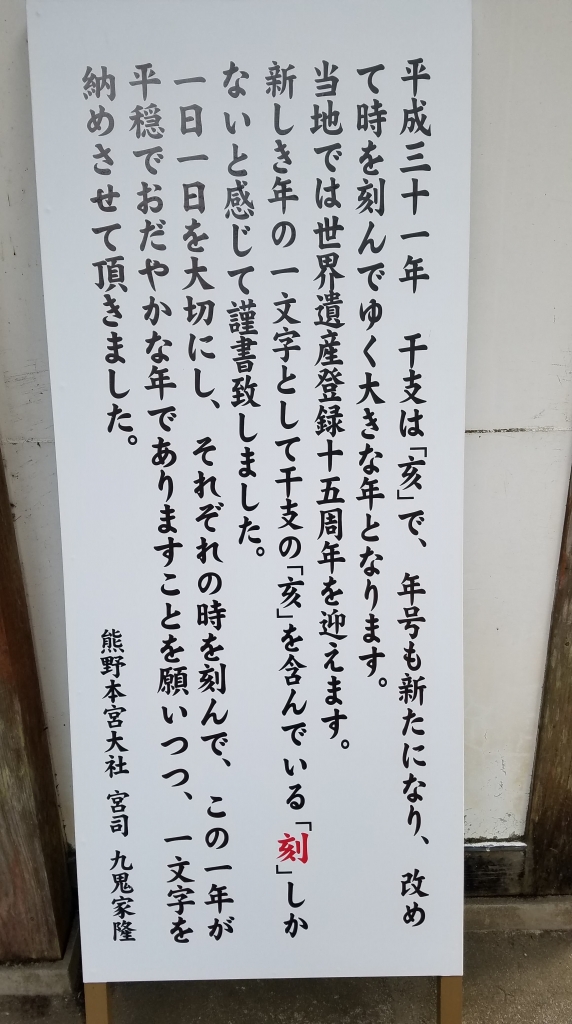 平成三十一年　干支は「亥」で、年号も新たになり、改め
て時を刻んでゆく大きな年となります。
当地では世界遺産登録十五周年を迎えます。
新しき年の一文字として干支の「亥」を含んでいる「刻」しか
ないと感じて謹書致しました。
一日一日を大切にし、それぞれの時を刻んで、この一年が
平穏でおだやかな年でありますことを願いつつ、一文字を
納めさせて頂きました。
熊野本宮大社　宮司　九鬼家隆